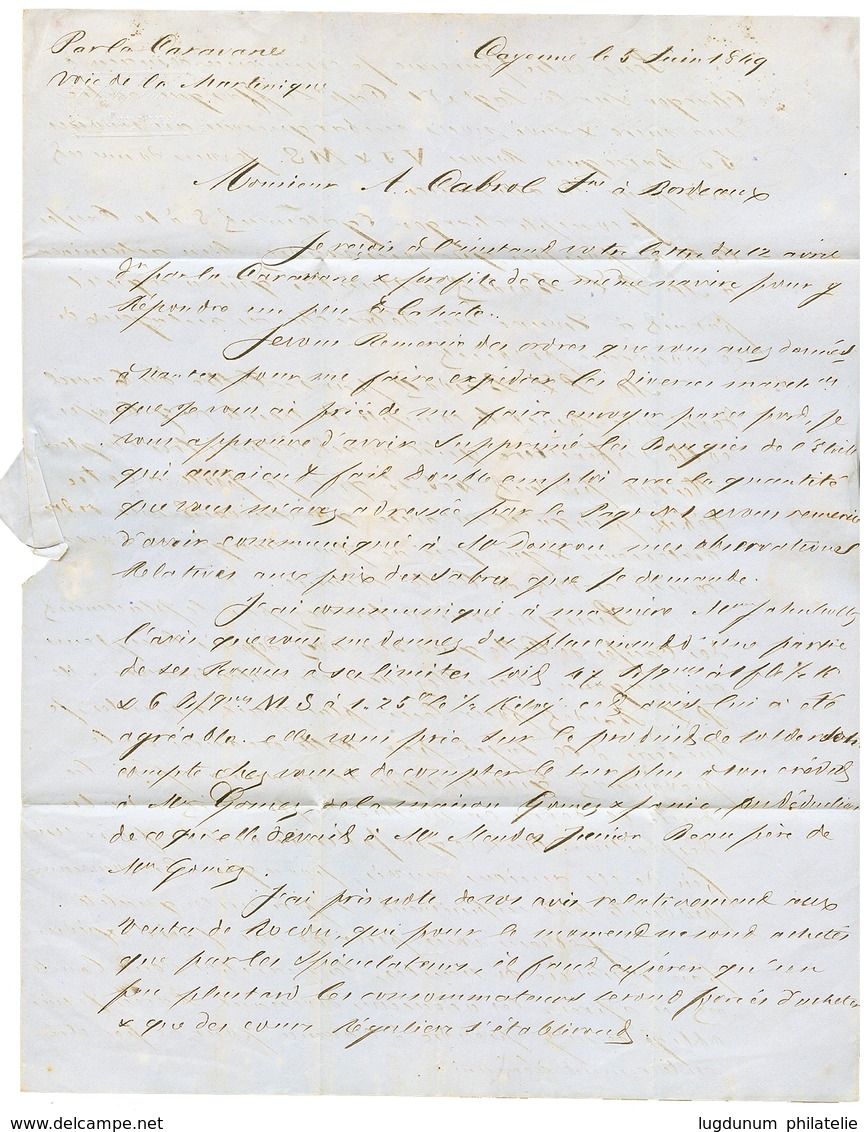 Par la Caravane
Voie de la Martinique
Cayenne le 5 Juin 1849
Monsieur A. Cabrol Jne à Bordeaux
Je reçois à l'instant votre lettre du 12 avril
dr par la Caravane & profite de ce même navire pour y
Répondre un peu à la hate.
Je vous Remercie des ordres que vous avez donnés
à Nantes pour me faire expédier les diverses march
que je vous ai prié de me faire envoyer par ce port, je
vous approuve d'avoir supprimé les Bougies de l'Etoile
qui auraient fait Double emploi avec la quantité
que vous m'avez adressée par le N 1 & vous remercie
d'avoir communiqué à Mr mes observations
Relatives aux prix des Sabres que je demande.
J'ai communiqué à ma mère Mme
l'avis que vous me donnez du placement d'une partie
de ses Rocous à ses limites soit 47 à 1 f le ½ K
& 6 M S à 1.25 le ½ Kilog cet avis lui a été
agréable. elle vous prie sur le produit de solder son
compte chez vous & de compter le surplus à son crédit
à Mr Gomez de la maison Gomez & en Déduction
de ce qu'elle devait à Mr Mendez Junior Beau père de
Mr Gomez.
J'ai pris note de vos avis relativement aux
Ventes de Rocou, qui pour le moment ne sont achetés
que par les spéculateurs, il faut espérer qu'un
peu plus tard les consommateurs seront forcés d'acheter
& que des cours Réguliers s'établiront.
lugdunum philatelie
www.delcampe.net